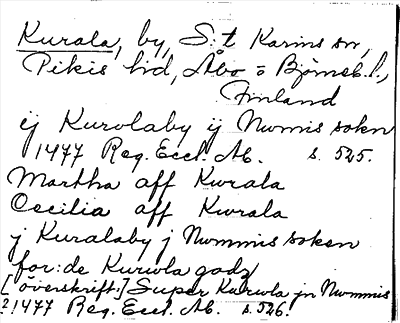 Kurala, by, S:t Karins sn,
Pikis hd, Åbo o Björneb. l.,
Finland
ij Kurolaby ij Nwmis sokn
1477 Reg. Eccl. Ab. s. 525.
Martha aff Kwrala
Cecilia aff Kwrala
j Kuralaby j Nwmmis soken
for:de Kurwla godz
[överskrift:] Super Kurwla jn Nwmmis
?1477 Reg. Eccl. Ab. s. 526.